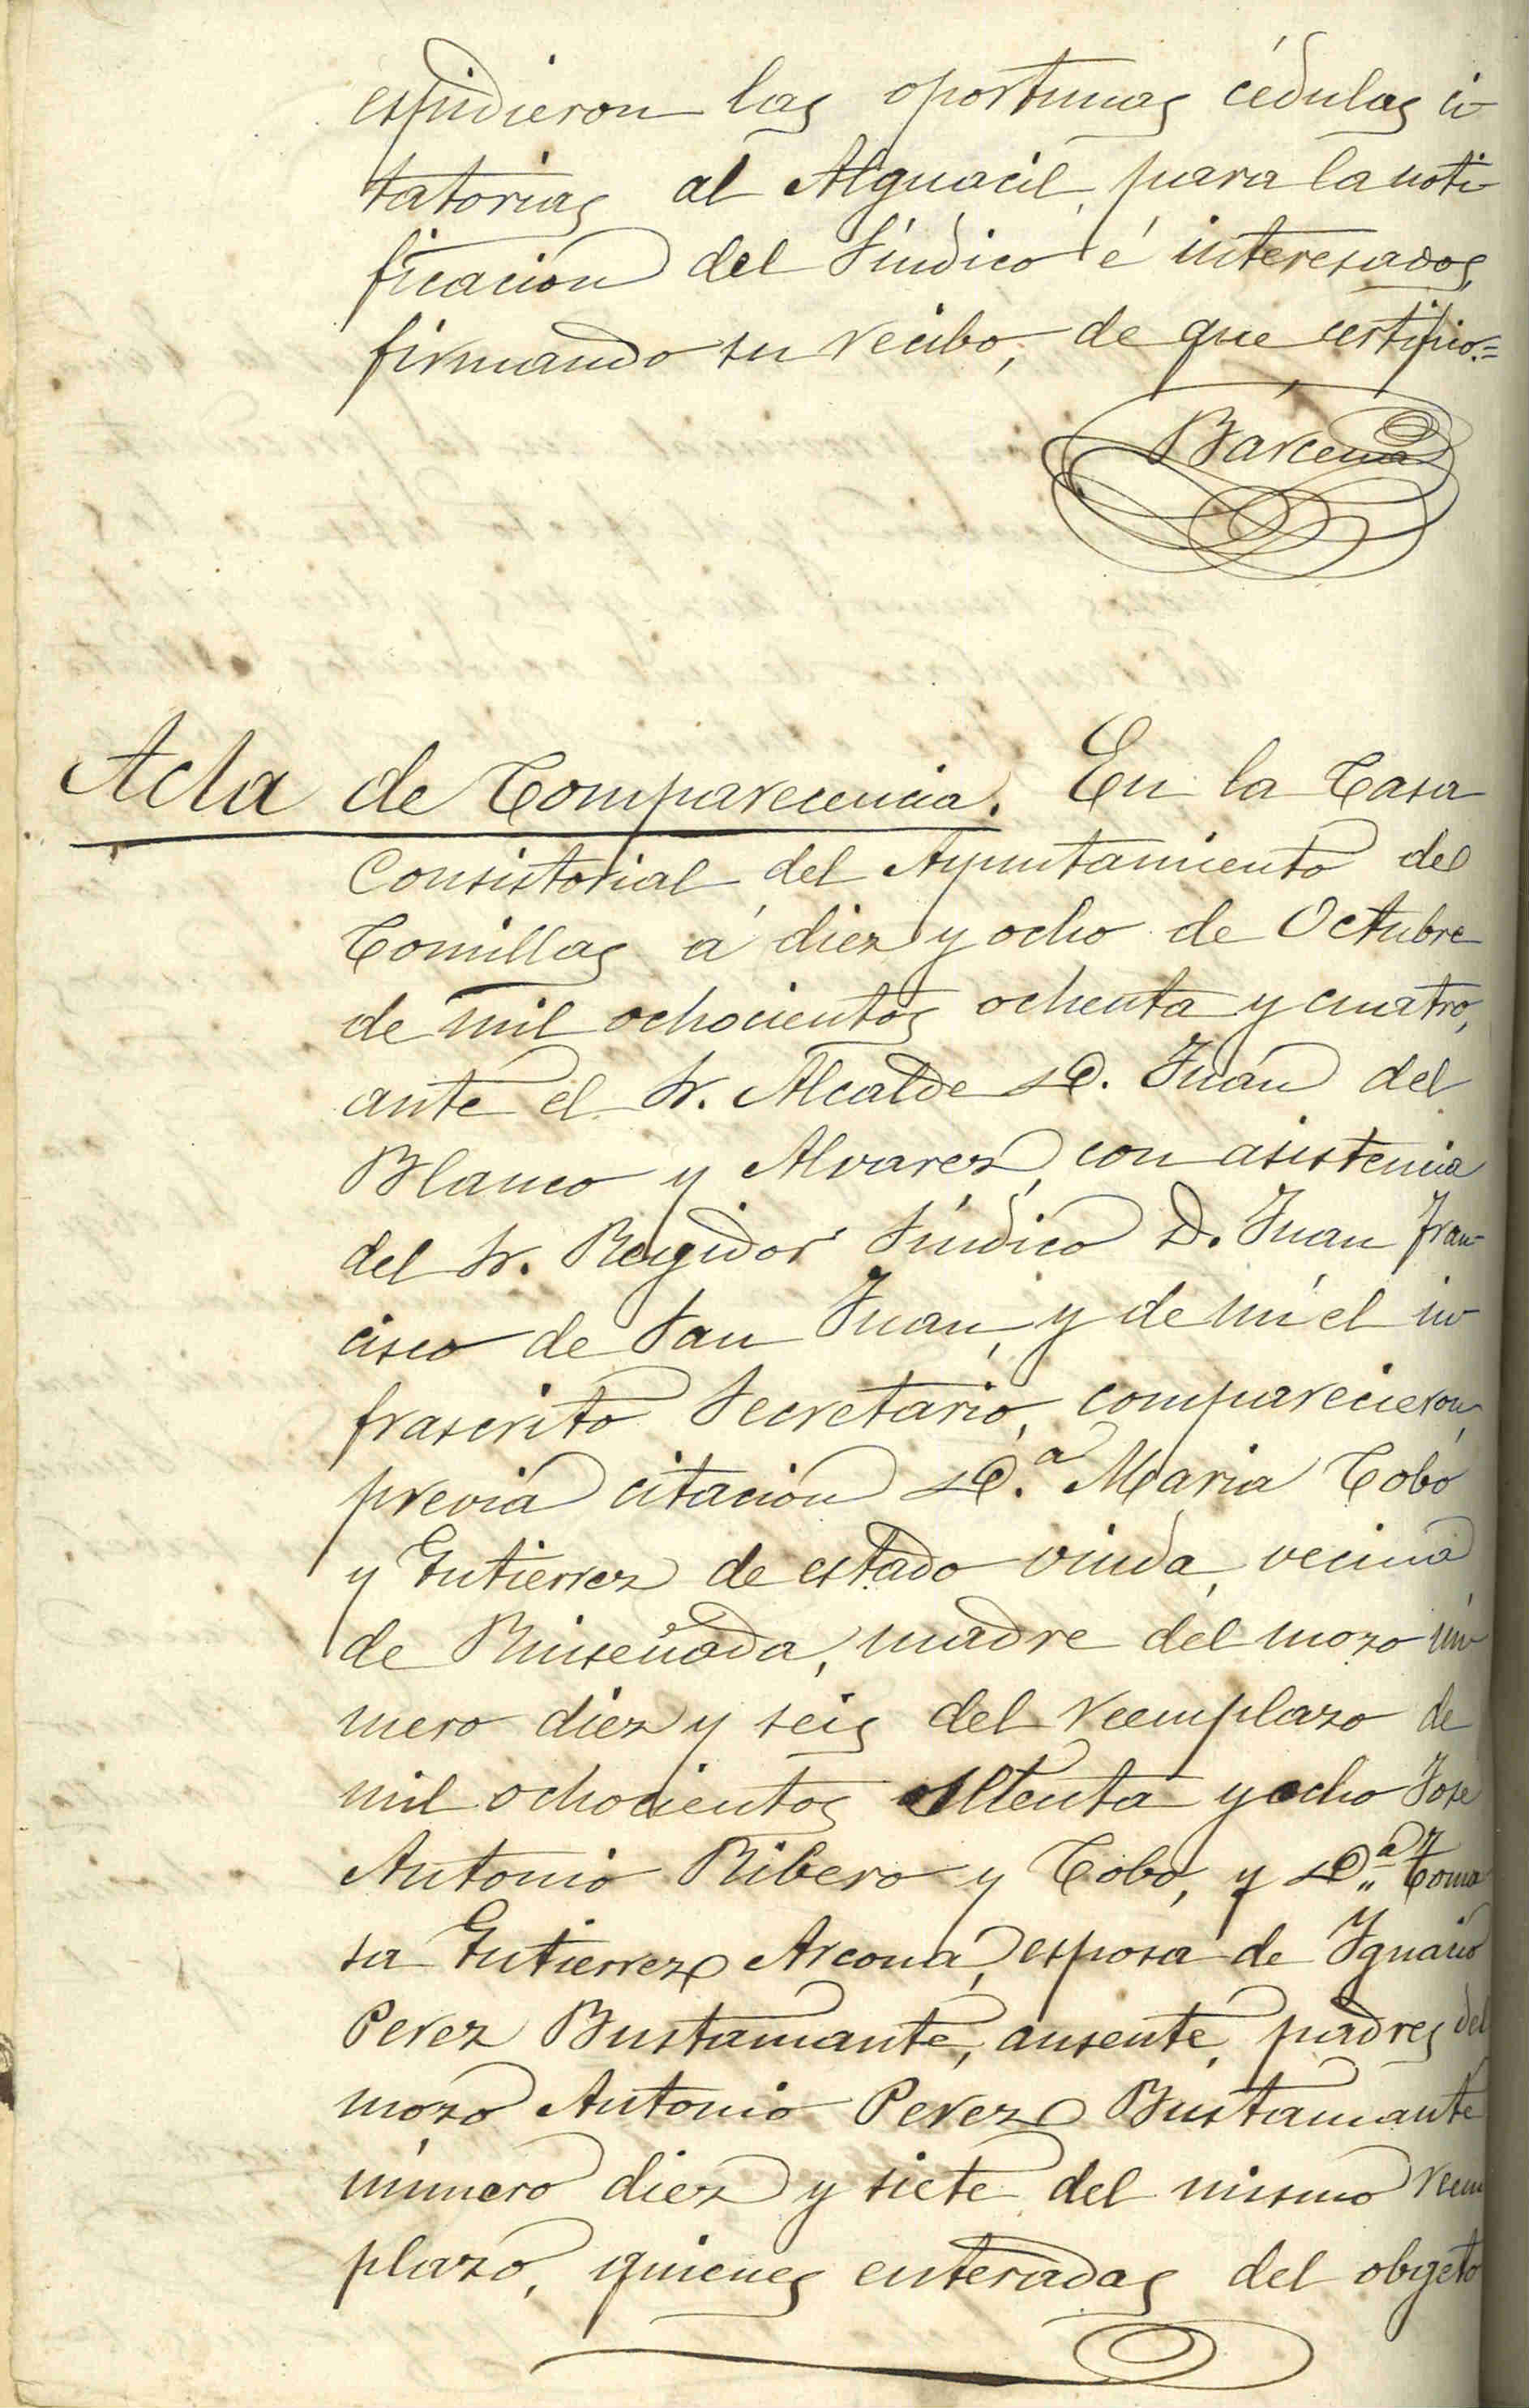 espidieron las oportunas cédulas ci-
tatorias al Alguacil, para la noti-
ficacion del Síndico é interesados,
firmando su recibo, de que certifico.=
Bárcena
Acta de Comparecencia. En la Casa
Consistorial del Ayuntamiento de
Comillas á diez y ocho de Octubre
de mil ochocientos ochenta y cuatro,
ante el Sr. Alcalde D. Juan del
Blanco y Alvarez, con asistencia
del Sr. Regidor Síndico D. Juan Fran-
cisco de San Juan, y de mí el in-
frascrito Secretario, comparecieron,
previa citacion D.ª Maria Cobo
y Gutierrez de estado viuda, vecina
de Ruiseñada, madre del mozo nú-
mero diez y seis del reemplazo de
mil ochocientos setenta y ocho José
Antonio Ribero y Cobo, y D.ª Toma
sa Gutierrez Arcona, esposa de Ignacio
Perez Bustamante, ausente, padres del
mozo Antonio Perez Bustamante
número diez y siete del mismo reem
plazo, quienes enteradas del obgeto